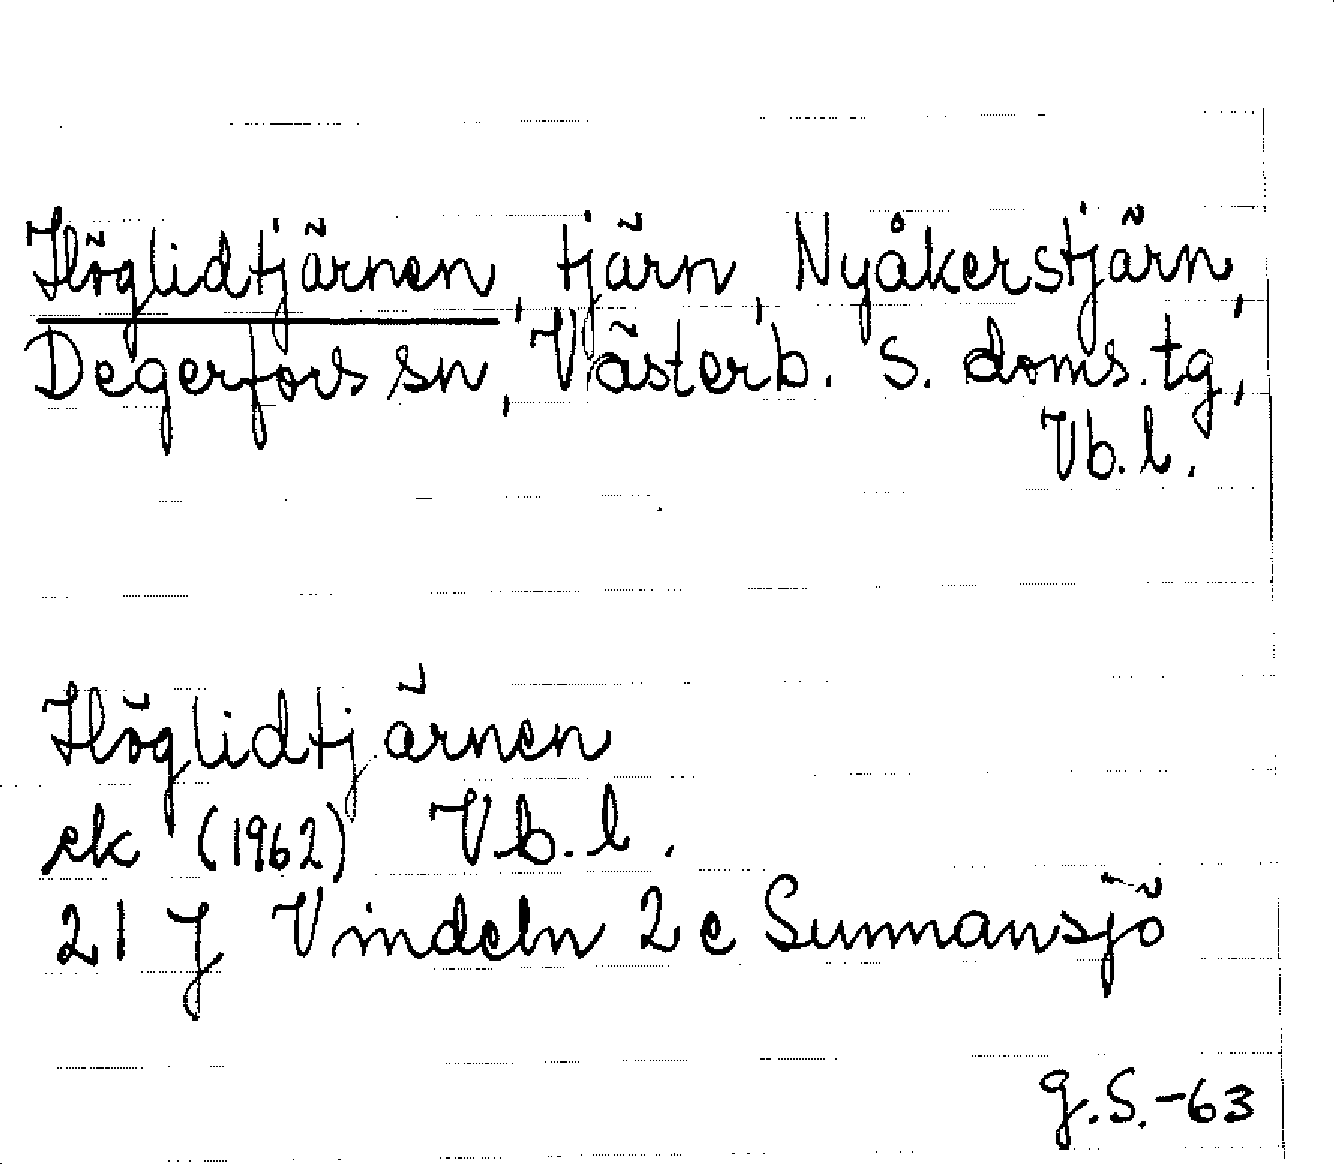 Höglidtjärnen, tjärn, Nyåkerstjärn,
Degerfors sn, Västerb. s. doms. tg,
Vb. l.
Höglidtjärnen
ek (1962) Vb. l.
21 J Vindeln 2 e Sunnansjö
g. S. -63